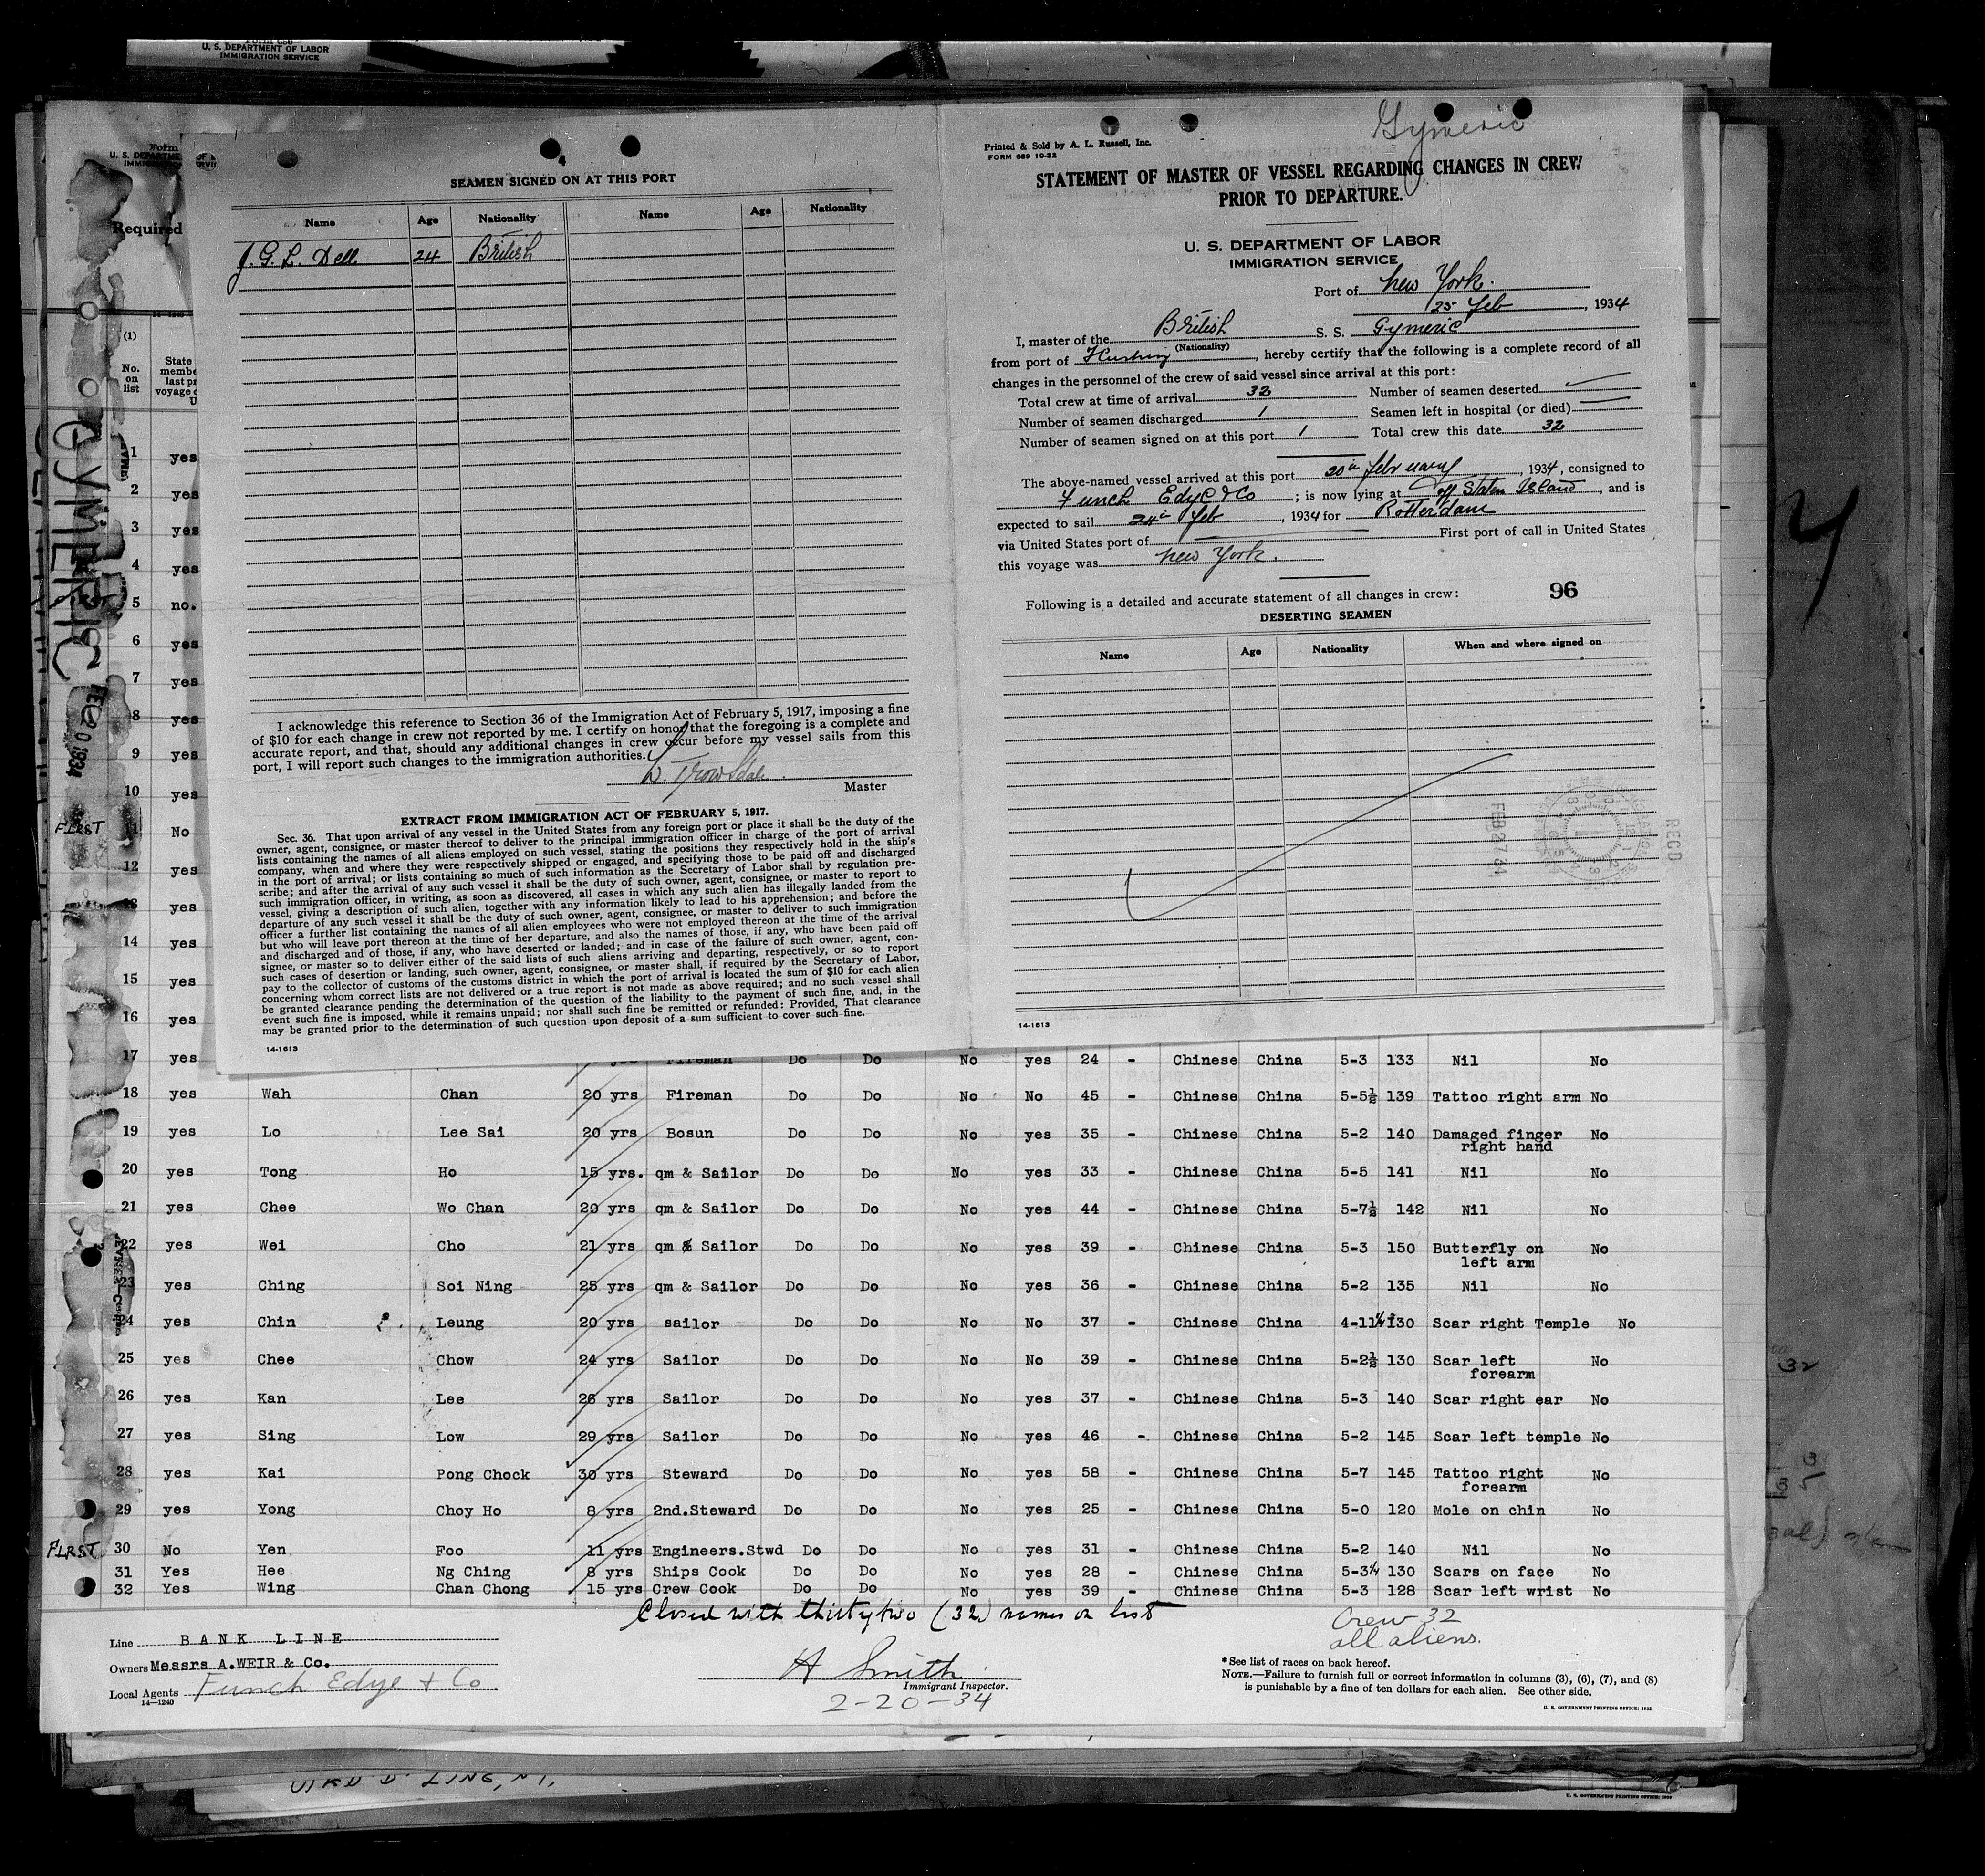 Form 686
U. S. DEPARTMENT OF LABOR
IMMIGRATION SERVICE
4
SEAMEN SIGNED ON AT THIS PORT
Name Age Nationality Name Age Nationality
J. G. L. Dell 24 British
I acknowledge this reference to Section 36 of the Immigration Act of February 5, 1917, imposing a fine
of $10 for each change in crew not reported by me. I certify on honor that the foregoing is a complete and
accurate report, and that, should any additional changes in crew occur before my vessel sails from this
port, I will report such changes to the immigration authorities.
Master
EXTRACT FROM IMMIGRATION ACT OF FEBRUARY 5, 1917.
Sec. 36. That upon arrival of any vessel in the United States from any foreign port or place it shall be the duty of the
owner, agent, consignee, or master thereof to deliver to the principal immigration officer in charge of the port of arrival
lists containing the names of all aliens employed on such vessel, stating the positions they respectively hold in the ship's
company, when and where they were respectively shipped or engaged, and specifying those to be paid off and discharged
in the port of arrival; or lists containing so much of such information as the Secretary of Labor shall by regulation pre-
scribe; and after the arrival of any such vessel it shall be the duty of such owner, agent, consignee, or master to report to
such immigration officer, in writing, as soon as discovered, all cases in which any such alien has illegally landed from the
vessel, giving a description of such alien, together with any information likely to lead to his apprehension; and before the
departure of any such vessel it shall be the duty of such owner, agent, consignee, or master to deliver to such immigration
officer a further list containing the names of all alien employees who were not employed thereon at the time of the arrival
but who will leave port thereon at the time of her departure, and also the names of those, if any, who have been paid off
and discharged and of those, if any, who have deserted or landed; and in case of the failure of such owner, agent, con-
signee, or master so to deliver either of the said lists of such aliens arriving and departing, respectively, or so to report
such cases of desertion or landing, such owner, agent, consignee, or master shall, if required by the Secretary of Labor,
pay to the collector of customs of the customs district in which the port of arrival is located the sum of $10 for each alien
concerning whom correct lists are not delivered or a true report is not made as above required; and no such vessel shall
be granted clearance pending the determination of the question of the liability to the payment of such fine, and, in the
event such fine is imposed, while it remains unpaid; nor shall such fine be remitted or refunded: Provided, That clearance
may be granted prior to the determination of such question upon deposit of a sum sufficient to cover such fine.
14-1613
Gymeric
Printed & Sold by A. L. Russell, Inc.
FORM 689 10-32
STATEMENT OF MASTER OF VESSEL REGARDING CHANGES IN CREW
PRIOR TO DEPARTURE.
U. S. DEPARTMENT OF LABOR
IMMIGRATION SERVICE
Port of New York.
25 Feb, 1934
I, master of the British S. S. Gymeric
(Nationality)
from port of , hereby certify that the following is a complete record of all
changes in the personnel of the crew of said vessel since arrival at this port:
Total crew at time of arrival 32 Number of seamen deserted
Number of seamen discharged 1 Seamen left in hospital (or died)
Number of seamen signed on at this port 1 Total crew this date 32
The above-named vessel arrived at this port 20th February, 1934, consigned to
Funch Edye & Co; is now lying at off Staten Island, and is
expected to sail 24th Feb, 1934 for Rotterdam
via United States port of First port of call in United States
this voyage was New York.
Following is a detailed and accurate statement of all changes in crew: 96
DESERTING SEAMEN
Name Age Nationality When and where signed on
RECD
FEB 27 34
14-1613
Form
U. S. DEPARTME
IMMI
Required
(1)
No.
on
list
State
membe
last pr
voyage
U
GYMERIC
FEB 20 1934
1 yes
2 yes
3 yes
4 yes
5 no.
6 yes
7 yes
8 yes
9 yes
10 yes
FIRST 11 No
12 yes
13 yes
14 yes
15 yes
16 yes
17 yes Fireman Do Do No yes 24 - Chinese China 5-3 133 Nil No
18 yes Wah Chan 20 yrs Fireman Do Do No No 45 - Chinese China 5-5½ 139 Tattoo right arm No
19 yes Lo Lee Sai 20 yrs Bosun Do Do No yes 35 - Chinese China 5-2 140 Damaged finger right hand No
20 yes Tong Ho 15 yrs. qm & Sailor Do Do No yes 33 - Chinese China 5-5 141 Nil No
21 yes Chee Wo Chan 20 yrs qm & Sailor Do Do No yes 44 - Chinese China 5-7½ 142 Nil No
22 yes Wei Cho 21 yrs qm & Sailor Do Do No yes 39 - Chinese China 5-3 150 Butterfly on left arm No
23 yes Ching Soi Ning 25 yrs qm & Sailor Do Do No yes 36 - Chinese China 5-2 135 Nil No
24 yes Chin Leung 20 yrs sailor Do Do No No 37 - Chinese China 4-11¼ 130 Scar right Temple No
25 yes Chee Chow 24 yrs Sailor Do Do No No 39 - Chinese China 5-2½ 130 Scar left forearm No
26 yes Kan Lee 26 yrs Sailor Do Do No yes 37 - Chinese China 5-3 140 Scar right ear No
27 yes Sing Low 29 yrs Sailor Do Do No yes 46 - Chinese China 5-2 145 Scar left temple No
28 yes Kai Pong Chock 30 yrs Steward Do Do No yes 58 - Chinese China 5-7 145 Tattoo right forearm No
29 yes Yong Choy Ho 8 yrs 2nd.Steward Do Do No yes 25 - Chinese China 5-0 120 Mole on chin No
FIRST 30 No Yen Foo 11 yrs Engineers.Stwd Do Do No yes 31 - Chinese China 5-2 140 Nil No
31 Yes Hee Ng Ching 8 yrs Ships Cook Do Do No yes 28 - Chinese China 5-3¼ 130 Scars on face No
32 Yes Wing Chan Chong 15 yrs Crew Cook Do Do No yes 39 - Chinese China 5-3 128 Scar left wrist No
Closed with thirtytwo (32) names on list
Crew 32
all aliens.
Line BANK LINE
Owners Messrs A.WEIR & Co.
Local Agents Funch Edye + Co
14-1240
H Smith
Immigrant Inspector.
2-20-34
*See list of races on back hereof.
NOTE.—Failure to furnish full or correct information in columns (3), (6), (7), and (8)
is punishable by a fine of ten dollars for each alien. See other side.
U. S. GOVERNMENT PRINTING OFFICE: 1932
32
3
35